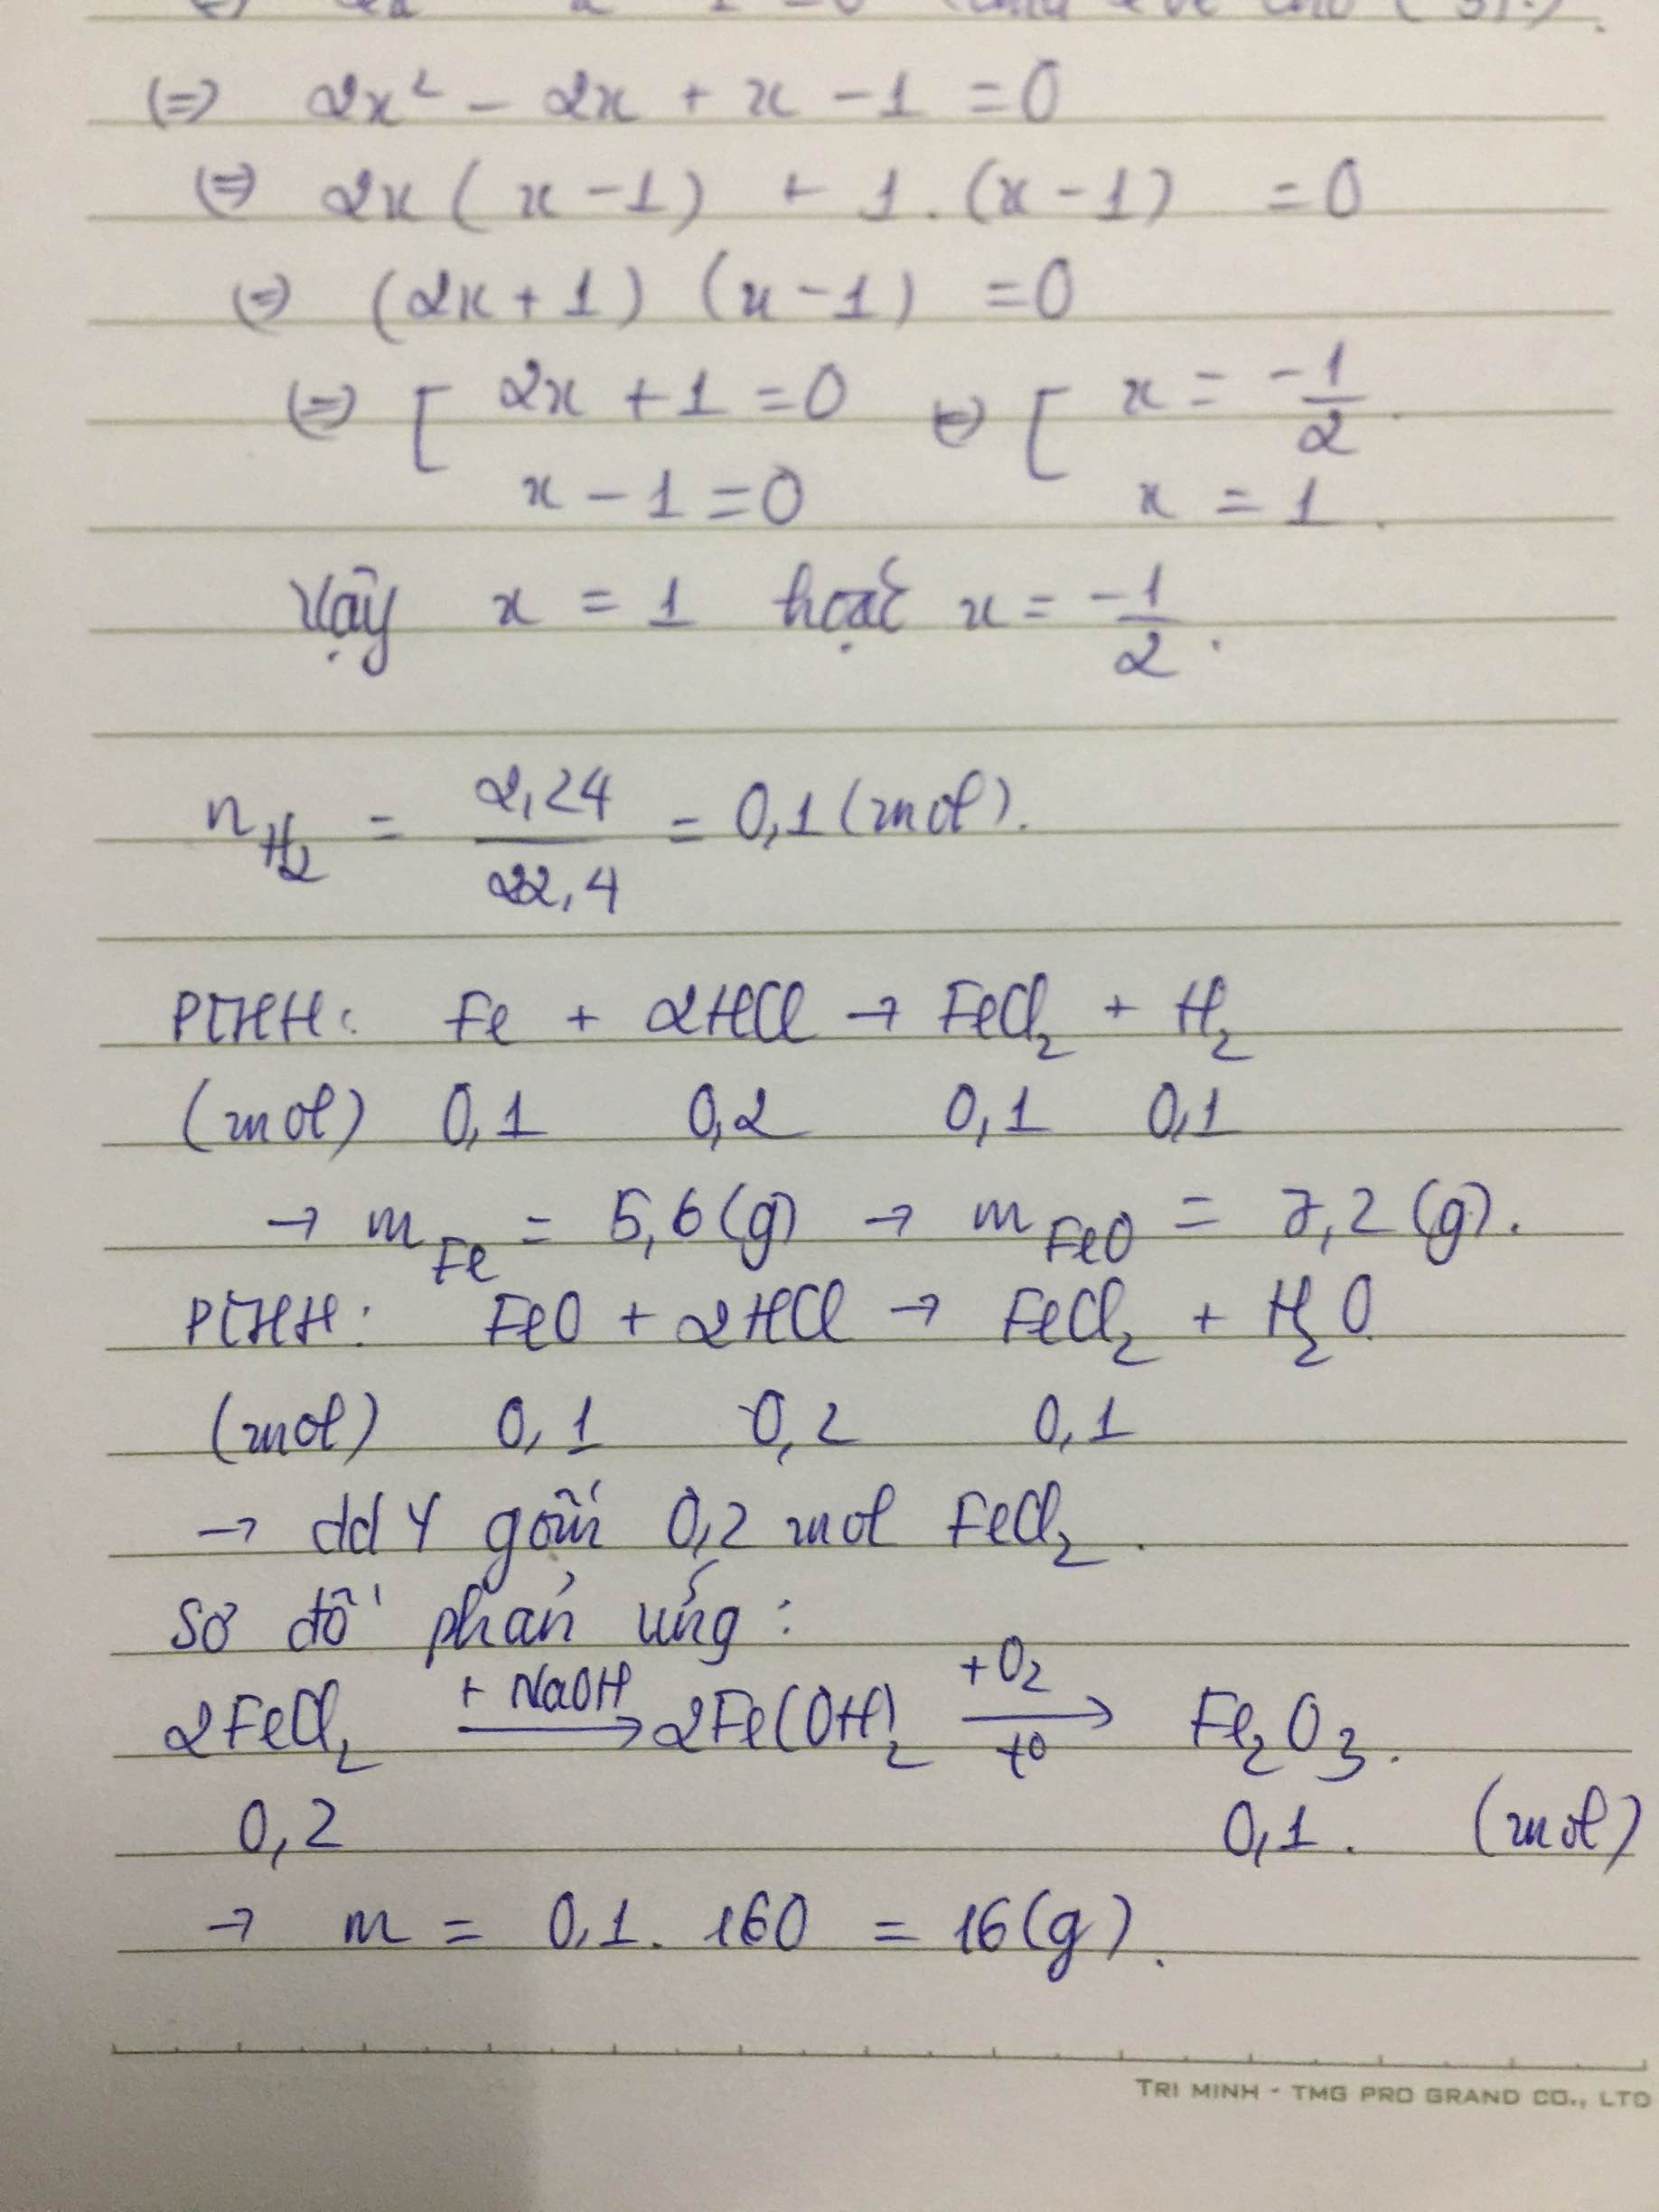 (⇒) 2x² - 2x + x - 1 = 0
(⇒) 2x(x-1) + 1.(x-1) = 0
(⇒) (2x+1)(x-1) = 0
(⇒) [ 2x+1=0 ⇔ [ x = -1/2.
x-1=0 x = 1.
Vậy x = 1 hoặc x = -1/2.
n_H₂ = 2,24/22,4 = 0,1(mol).
PTHH: Fe + 2HCl → FeCl₂ + H₂
(mol) 0,1 0,2 0,1 0,1
→ m_Fe = 5,6(g) → m_FeO = 7,2(g).
PTHH: FeO + 2HCl → FeCl₂ + H₂O
(mol) 0,1 0,2 0,1
→ dd Y gồm 0,2 mol FeCl₂.
Sơ đồ phản ứng:
2FeCl₂ +NaOH→ 2Fe(OH)₂ +O₂→ t⁰ Fe₂O₃.
0,2 0,1. (mol)
→ m = 0,1. 160 = 16(g).
TRI MINH - TMG PRO GRAND CO., LTD